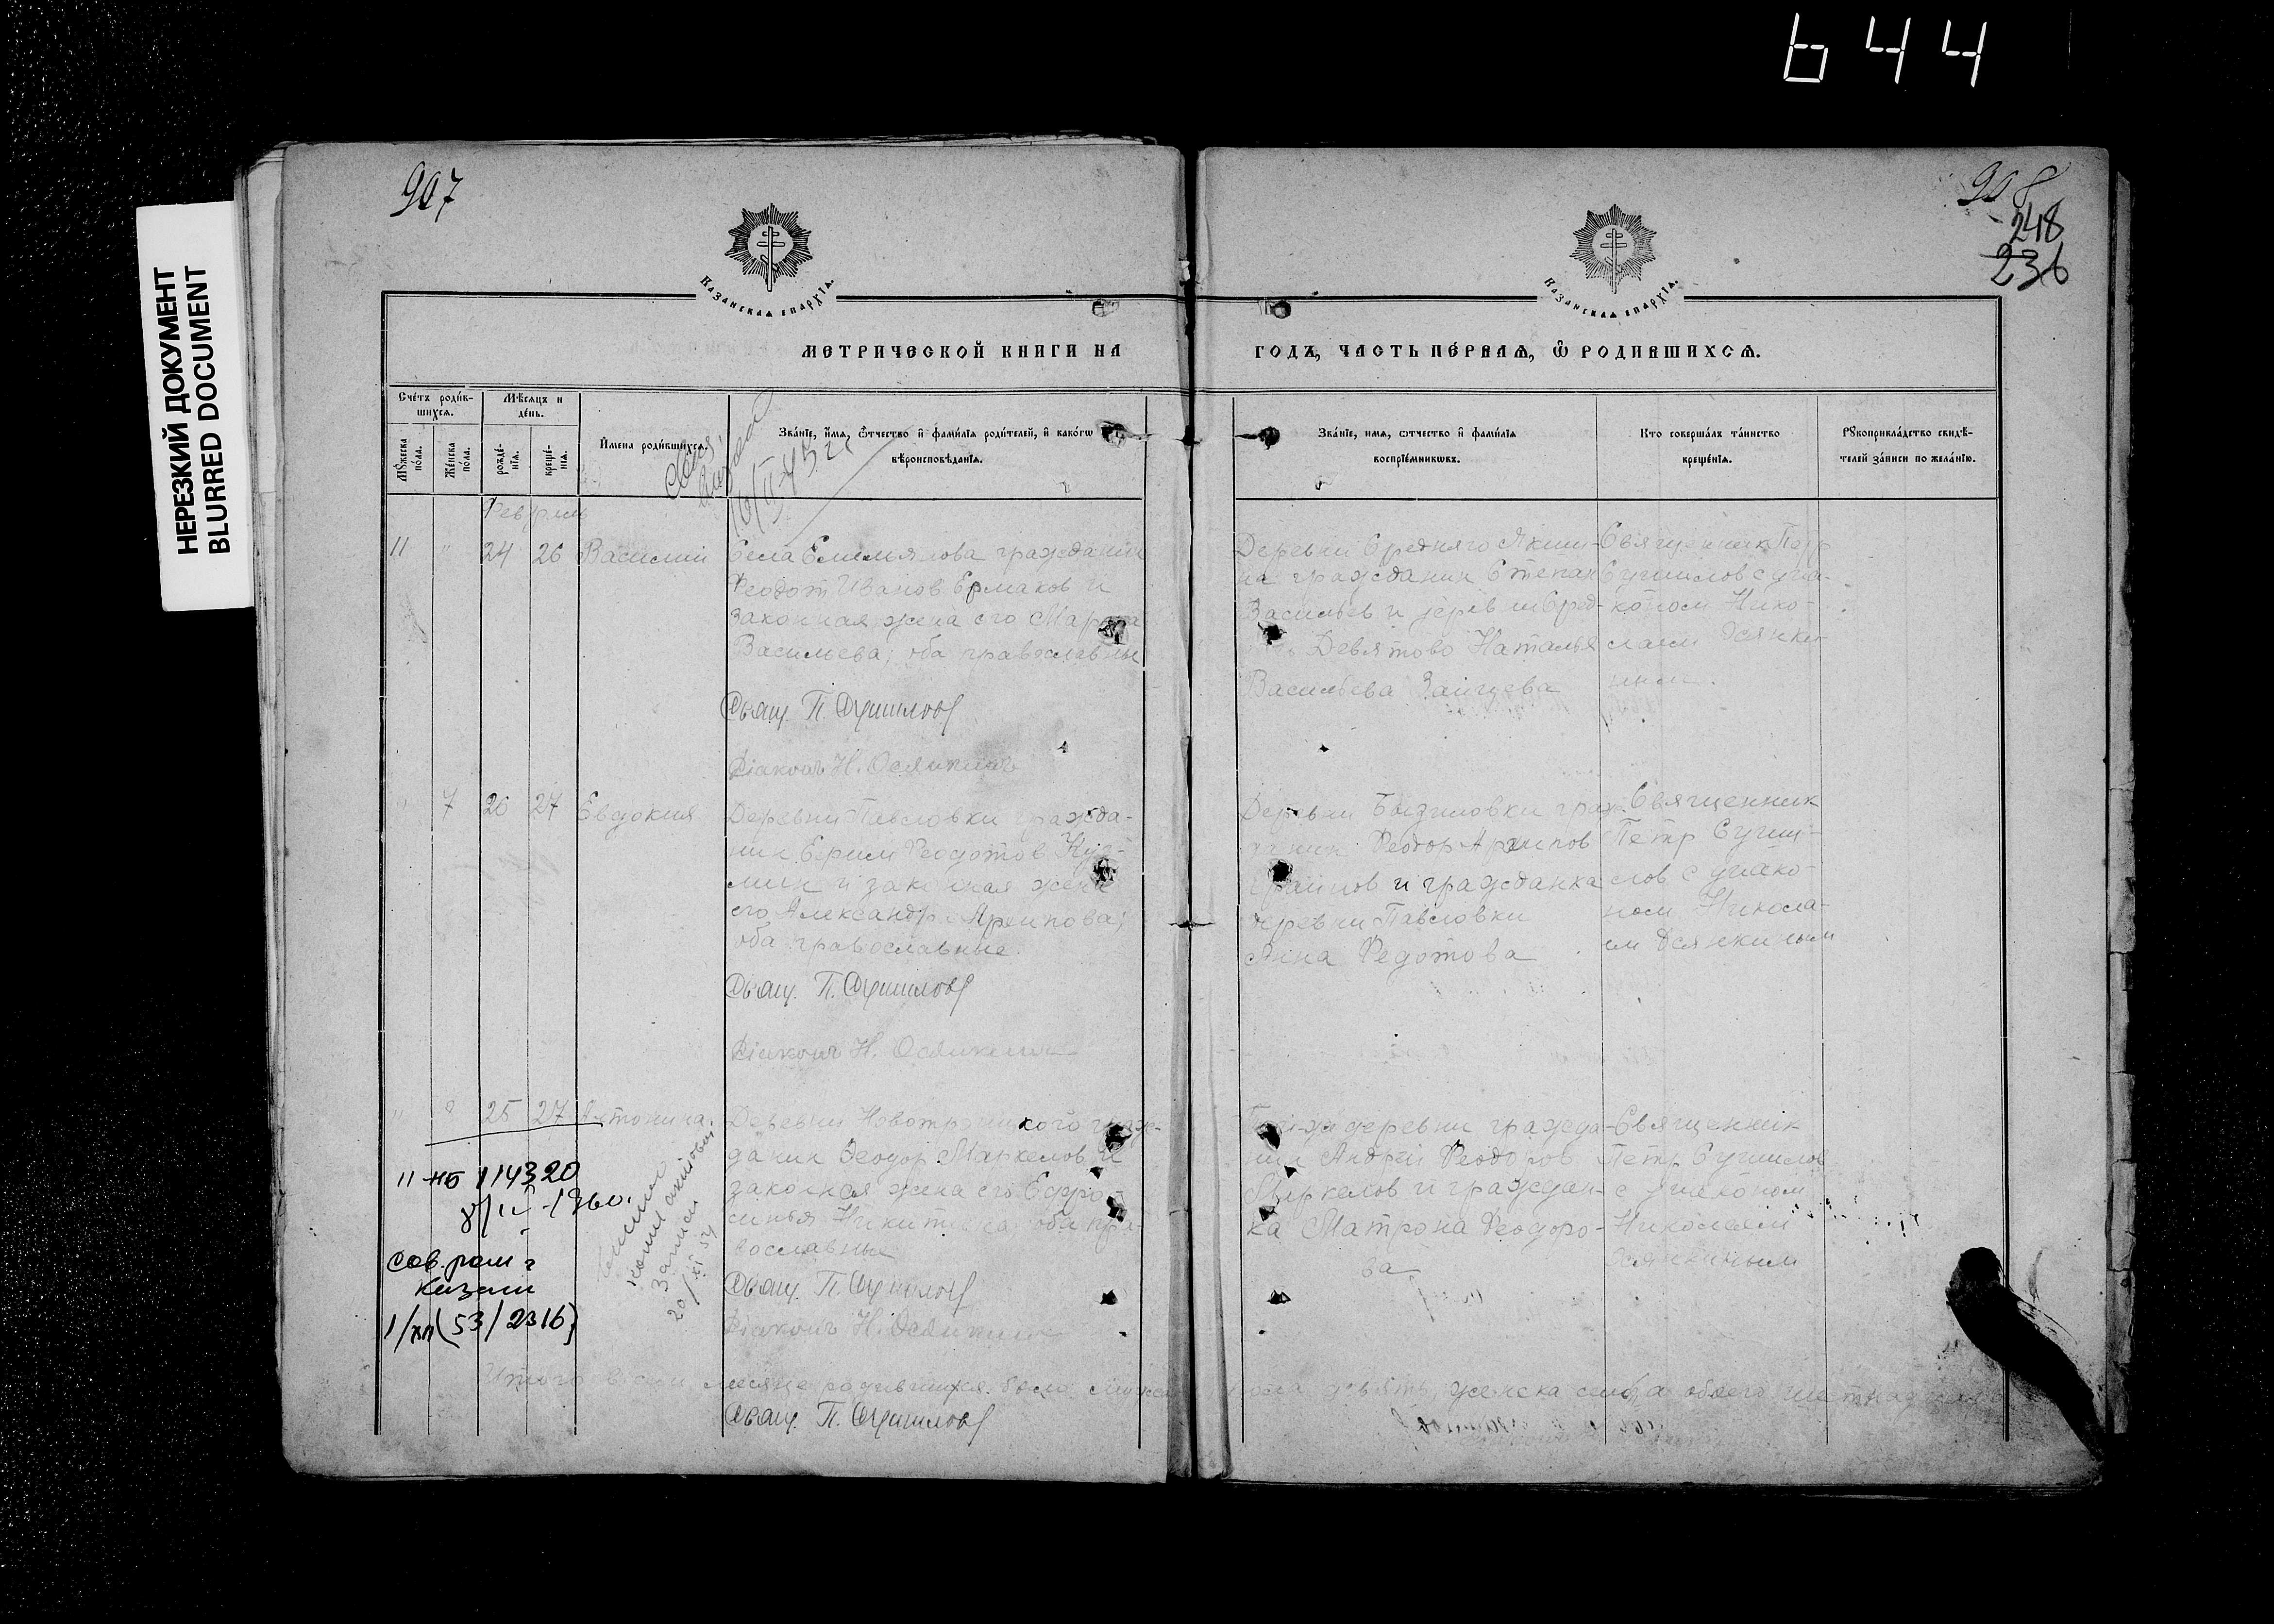 644
НЕРЕЗКИЙ ДОКУМЕНТ
BLURRED DOCUMENT
907
908
248
236
Казанская епархїа.
Казанская епархїа.
МЕТРИЧЕСКОЙ КНИГИ НА
ГОДЪ, ЧАСТЬ ПЕ́РВАЯ, Ѡ РОДИВШИХСЯ.
Сче́тъ роди́в-
шихся.
Мѣ́сяцъ и
де́нь.
Мꙋ́жеска
по́ла.
Же́нска
по́ла.
рожде́-
нїя.
креще́-
нїя.
И҆мена роди́вшихся.
Зва́нїе, и҆мя, ѻ҆́тчество и҆ фами́лїя роди́телей, и҆ како́гѡ
вѣроисповѣ́данїя.
Зва́нїе, имя, ѻтчество и҆ фами́лїя
воспрїе́мникѡвъ.
Кто соверша́лъ та́инство
креще́нїя.
Рꙋкоприкла́дство свидѣ́-
телей за́писи по жела́нїю.
Февраль
11 " 24 26 Василий
Села Емельянова гражданин
Феодот Иванов Ермаков и
законная жена его Марфа
Васильева; оба православные
Свящ. П. Сушилов
Діаконъ Н. Осянкинъ
Деревни Среднего Яким-
на гражданин Степан
Васильев и деревни Сред-
Девятово Наталья
Васильева Зайцева
Священник Петр
Сушилов с диа-
коном Нико-
лаем Осянки-
ным.
" 7 26 27 Евдокия
Деревни Павловки гражда-
нин Ефрем Феодотов Куз-
мин и законная жена
его Александра Архипова;
оба православные.
Свящ. П. Сушилов
Діаконъ Н. Осянкинъ
Деревни
Феодор Архипов
и гражданка
деревни Павловки
Анна Федотова
Священник
Петр Суши-
лов с диако-
ном Никола-
ем Осянкиным
25 27 Антонина.
Деревни Новотроицкого граж-
данин Феодор Маркелов и
законная жена его Ефро-
синья Никитина оба пра-
вославные
Свящ. П. Сушилов
Діаконъ Н. Осянкинъ
деревни гражда-
нин Андрей Феодоров
Маркелов и граждан-
ка Матрона Феодоро-
ва
Священник
Петр Сушилов
с диаконом
Николаем
Осянкиным
11-НБ 114320
1960.
Казани
(53/2316)
копия
записи
20/XI 54
Итого в сем месяце родившихся было мужска пола девять, женска семь, а обоего шестнадцать
Свящ. П. Сушилов